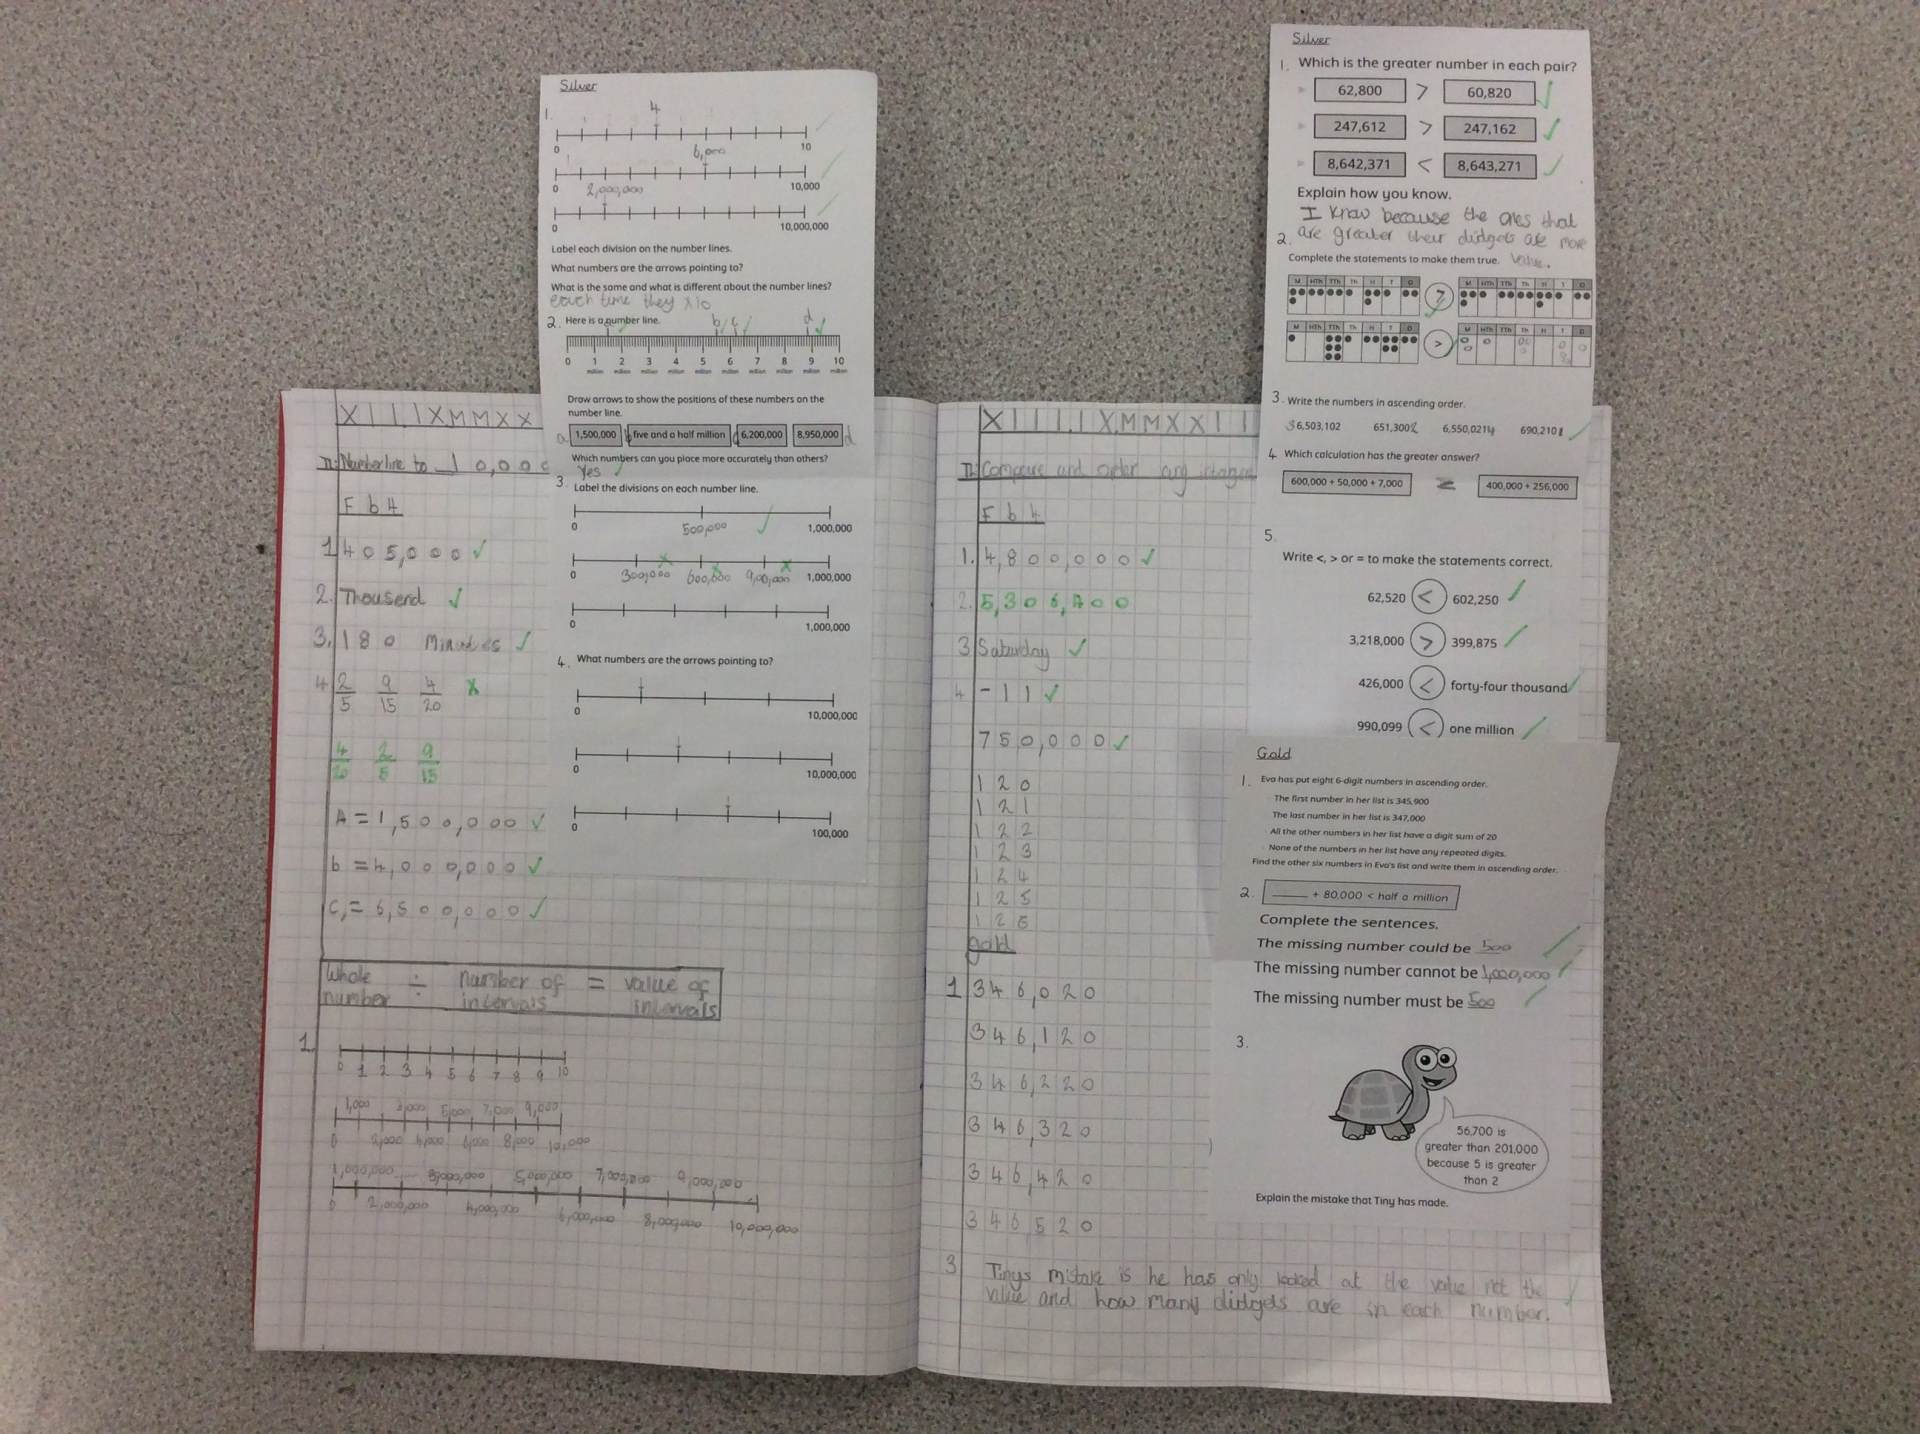 Silver
1.
4
0
10
6,000
0
10,000
2,000,000
0
10,000,000
Label each division on the number lines.
What numbers are the arrows pointing to?
What is the same and what is different about the number lines?
each time they x10
2. Here is a number line.
b c d
0 1 2 3 4 5 6 7 8 9 10
million million million million million million million million million million
Draw arrows to show the positions of these numbers on the
number line.
a 1,500,000 b five and a half million c 6,200,000 8,950,000 d
Which numbers can you place more accurately than others?
Yes
3. Label the divisions on each number line.
0 500,000 1,000,000
0 300,000 600,000 9,00,000 1,000,000
0 1,000,000
4. What numbers are the arrows pointing to?
0 10,000,000
0 10,000,000
0 100,000
XIII.IX.MMXX
Numberline to 10,000
F b 4
1 405,000
2. Thousend
3. 180 Minutes
4 2/5 9/15 4/20
4/20 2/5 9/15
A = 1,500,000
b = 4,000,000
C, = 6,500,000
Whole number ÷ number of intervals = value of intervals
1.
0 1 2 3 4 5 6 7 8 9 10
1,000 3,000 5,000 7,000 9,000
0 2,000 4,000 6,000 8,000 10,000
1,000,000 3,000,000 5,000,000 7,000,000 9,000,000
0 2,000,000 4,000,000 6,000,000 8,000,000 10,000,000
Silver
1. Which is the greater number in each pair?
62,800 > 60,820
247,612 > 247,162
8,642,371 < 8,643,271
Explain how you know.
I know because the ones that
are greater their didgets are more
value.
2. Complete the statements to make them true.
M HTh TTh Th H T O
>
M HTh TTh Th H T O
M HTh TTh Th H T O
>
M HTh TTh Th H T O
3. Write the numbers in ascending order.
3 6,503,102 651,300 2 6,550,021 4 690,210 1
4. Which calculation has the greater answer?
600,000 + 50,000 + 7,000
400,000 + 256,000
5.
Write <, > or = to make the statements correct.
62,520 < 602,250
3,218,000 > 399,875
426,000 < forty-four thousand
990,099 < one million
XIIII.IX.MMXXII
Compare and order any integers
F b 4
1. 4,800,000
2. 5,306,400
3 Saturday
4 -11
750,000
120
121
122
123
124
125
126
gold
1 346,020
346,120
346,220
346,320
346,420
346520
3 Tinys mistake is he has only looked at the value not the
value and how many didgets are in each number.
Gold
1. Eva has put eight 6-digit numbers in ascending order.
The first number in her list is 345,900
The last number in her list is 347,000
All the other numbers in her list have a digit sum of 20
None of the numbers in her list have any repeated digits.
Find the other six numbers in Eva's list and write them in ascending order.
2. ____ + 80,000 < half a million
Complete the sentences.
The missing number could be 500
The missing number cannot be 1,000,000
The missing number must be 500
3.
56,700 is
greater than 201,000
because 5 is greater
than 2
Explain the mistake that Tiny has made.